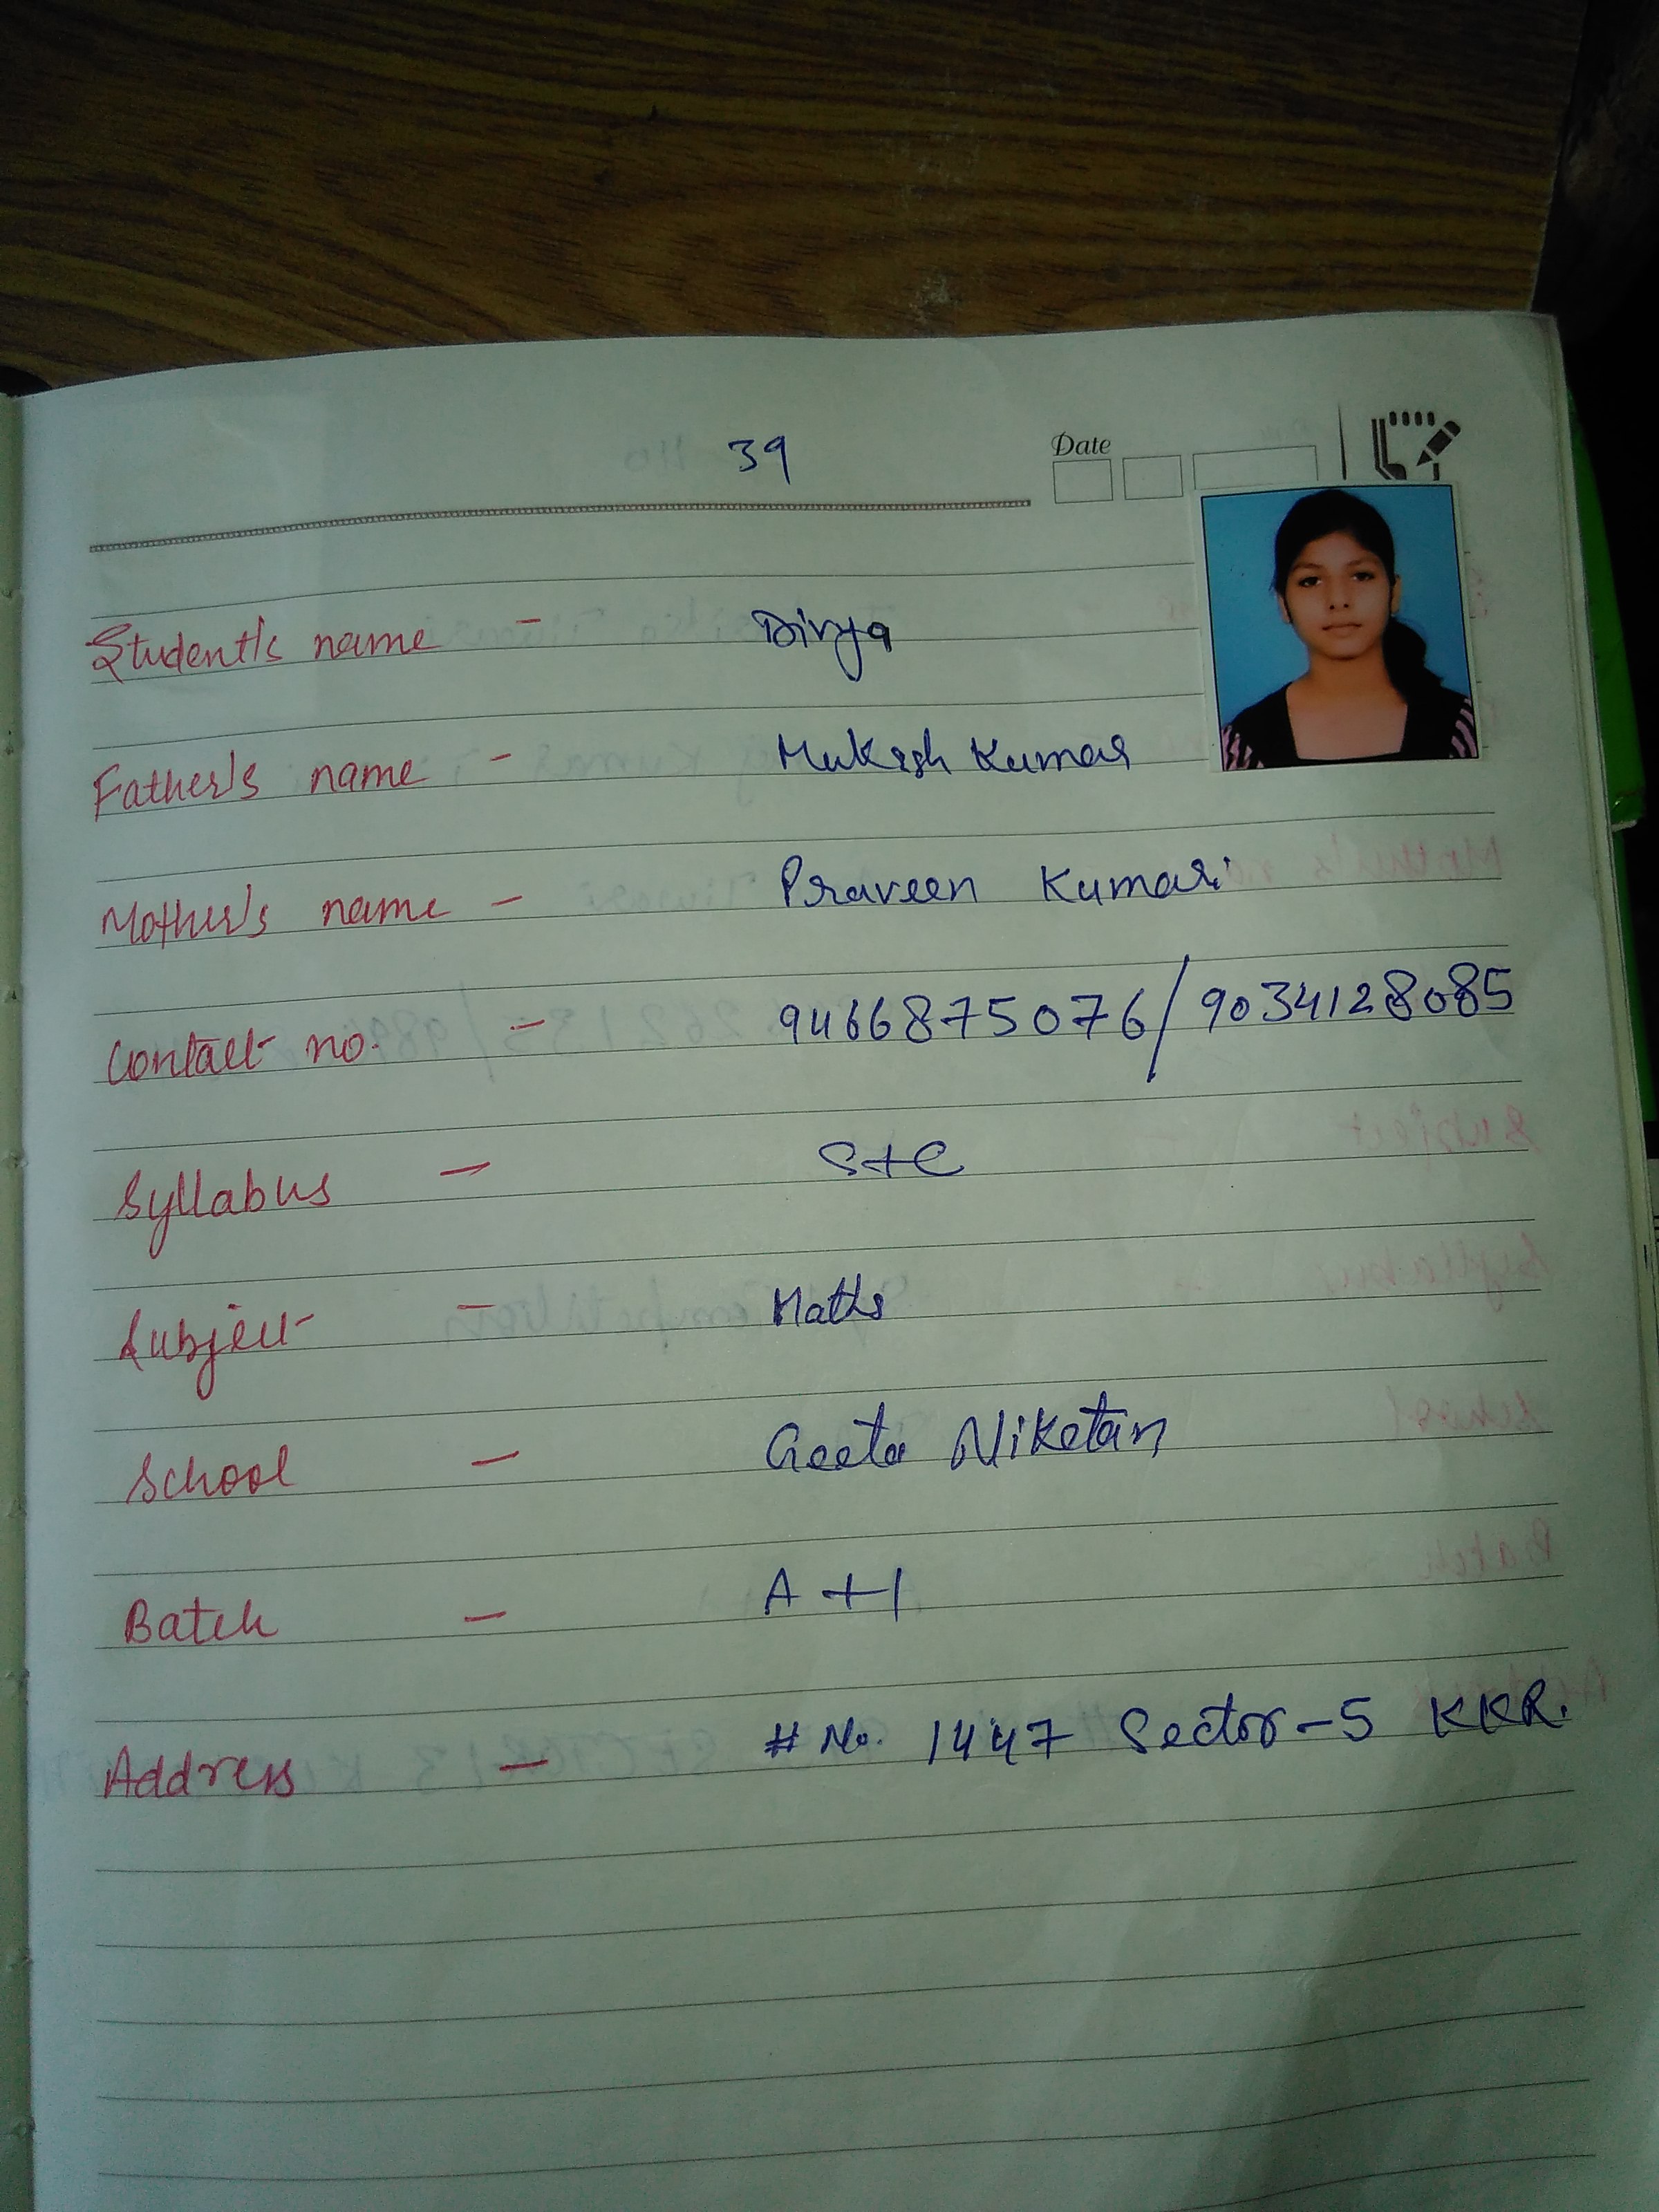 39
Date
Student's name - Divya
Father's name - Mukesh Kumar
Mother's name - Praveen Kumari
Contact no. - 9466875076/9034128085
Syllabus - S+C
Subject - Maths
School - Geeta Niketan
Batch - A+1
Address - # No. 1447 Sector-5 KKR.